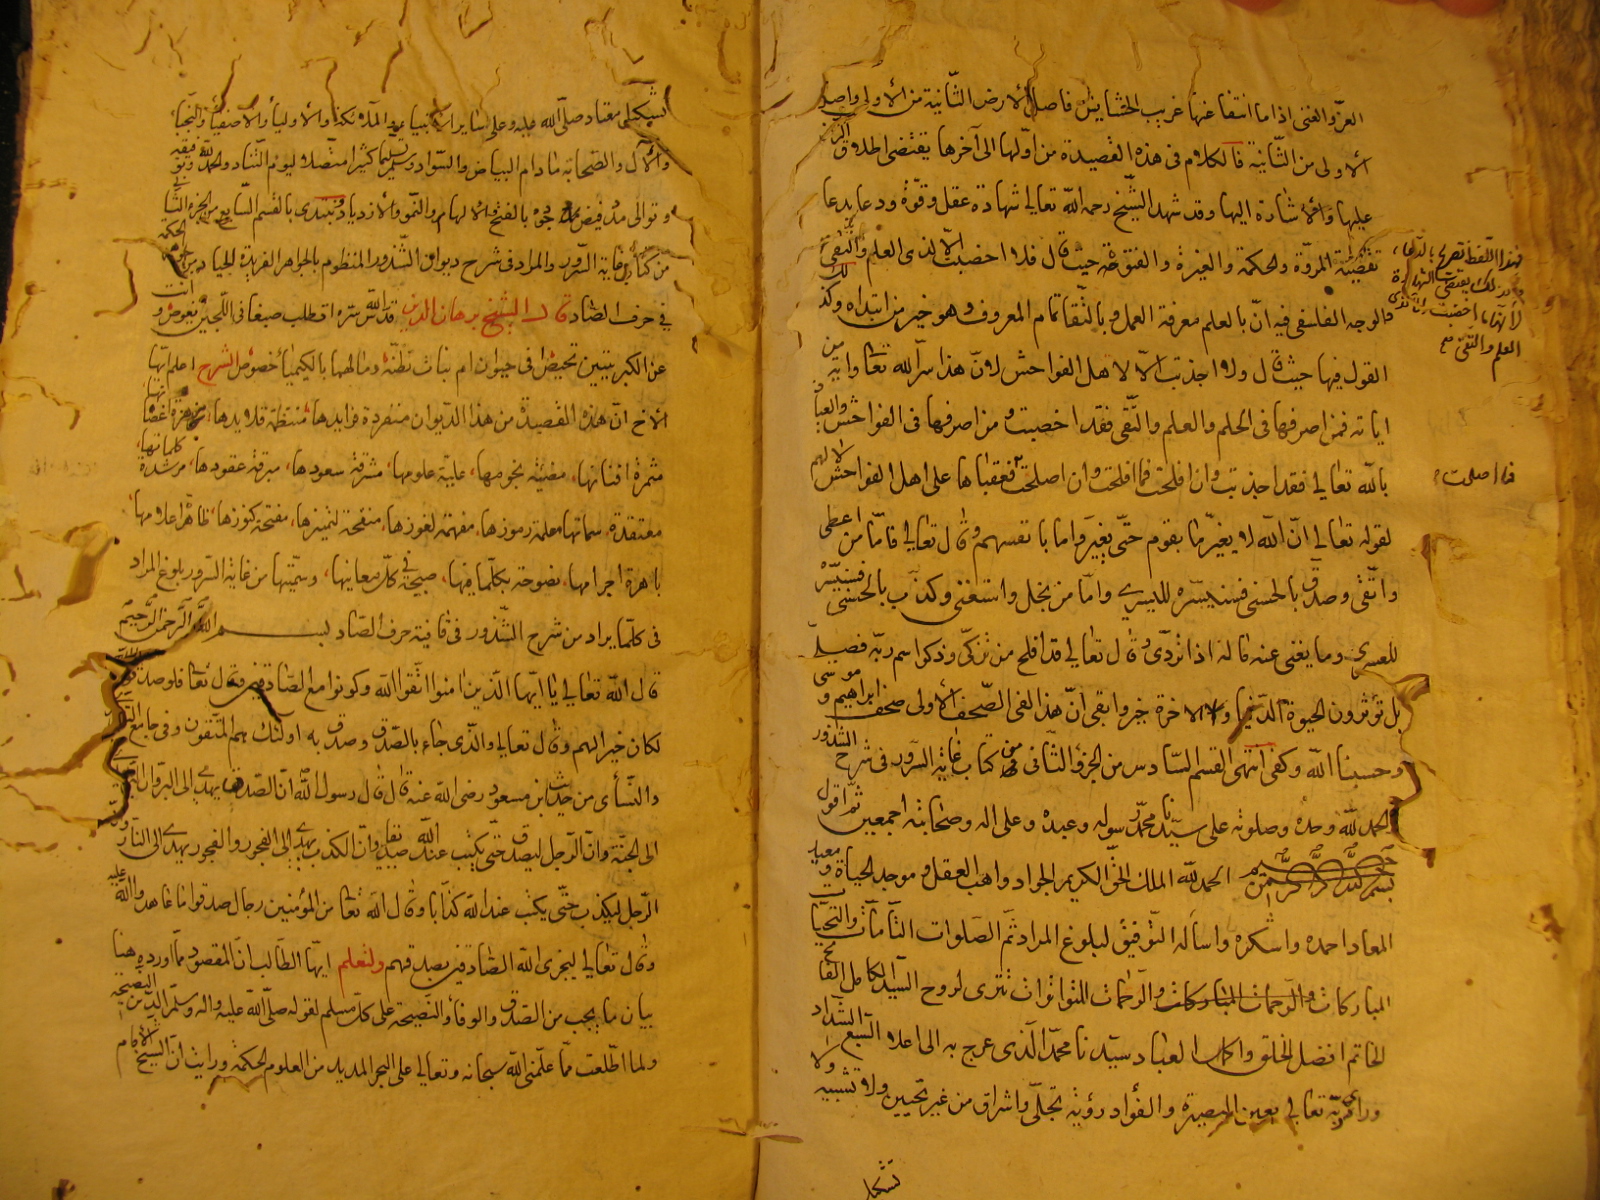 العزّ والغنى اذا ما انتفا عنها غريب الحشايش فاصل الارض الثانية من الاولى واصل
الاولى من الثانية فالكلام فى هذه القصيدة من اولها الى آخرها يقتضى اطلاق
عليها والاشارة اليها وقد شهد الشيخ رحمه الله تعالى شهادة عقل وقوة ودعا بدعا
المروة والحكمة والغيرة والفتوة حيث قال فلا اخصبت الا لذى العلم والتقى
والوجه الفلسفى فيه انّ بالعلم معرفة العمل وبالتقا تمام المعروف وهو خير من ابتداه وكذلك
القول فيها حيث قال ولا اجذبت الا لاهل الفواحش لانّ هذا سرّ الله تعا واية من
اياته فمن اصرفها فى الحلم والعلم والتقى فقد اخصبت ومن اصرفها فى الفواحش
بالله تعالى فقد اجذبت وان افلحت فما افلحت وان اصلحت فعقباها على اهل الفواحش
لقوله تعالى انّ الله لا يغيّر ما بقوم حتّى يغيّروا ما بانفسهم وقال تعالى فامّا من اعطى
واتّقى وصدّق بالحسنى فسنيسّره لليسرى وامّا من بخل واستغنى وكذّب بالحسنى فسنيسّره
للعسرى وما يغنى عنه ماله اذا تردّى وقال تعالى قد افلح من تزكّى وذكر اسم ربّه فصلّى
بل تؤثرون الحيوة الدّنيا والاخرة خير وابقى انّ هذا لفى الصّحف الاولى صحف ابراهيم وموسى
وحسبنا الله وكفى انتهى القسم السّادس من الجزؤ الثّانى من كتاب غاية السّرور فى شرح الشّذور
الحمد لله وحده وصلوته على سيّدنا محمّد رسوله وعبده وعلى اله وصحابته اجمعين ثمّ اقول
بسم الله الرحمن الرحيم الحمد لله الملك الحقّ الكريم الجواد واهب العقل وموجد الحياة ومعيد
المعاد احمده واشكره واسأله التّوفيق لبلوغ المراد ثمّ الصّلوات التّامّات والتحيّات
المباركات والرّحمات المتواترات تترى لروح السّيّد الكامل الفاتح
الخاتم افضل الخلق العباد سيّدنا محمّد الّذى عرج به الى اعلا السّبع الشّداد
وراى ربّه تعالى بعين البصيرة والفؤاد رؤية تجلّى واشراق من غير تحيين ولا تشبيه ولا
فهذا اللفظ تصريح بالدعا،
لانها ما اخصبت الا لذى
العلم والتقى صح
فما اصلحت
تشكل
تشكل معتاد صلّى الله عليه وعلى ساير الانبياء والملائكة والاولياء والاصفياء والنجباء
والآل والصّحابة ما دام البياض والسّواد وسلّم تسليما كثيرا متّصلا ليوم التّناد والحمد لله
وتوالى مدد فيض بالفتح والالهام والنّموّ والازدياد ونبتدى بالقسم السّابع من الجزء الثّانى
من كتاب غاية السّرور والمراد فى شرح ديوان الشّذور المنظوم بالجواهر الفريدة الجياد
فى حرف الصّاد قال الشّيخ برهان الدّين قدّس الله سرّه
عن الكبريتين تحيض فى حيوان ام نبات تظنّه وما لهما بالكيمياء خصوص الشّرح اعلم ايّها
الاخ انّ هذه القصيدة من هذا الدّيوان منفردة فرايدها، منتظمة قلايدها،
مثمرة افنانها، مضيئة نجومها، عليّة علومها، مشرقة سعودها، مبرقة عقودها، مرشدة كلماتها،
معتقدة سماتها معلمة رموزها، مفهمة لغوزها، مفتحة كنوزها، ظاهرا علامها
باهرة اجرامها، نصوحة بكلّ ما فيها، صبيحة فى كلّ معانيها، وسمّيتها من غاية السّرور بلوغ المراد
فى كلّما يراد من شرح الشّذور فى قافية حرف الصّاد بسم الله الرّحمن الرّحيم
قال الله تعالى يا ايّها الّذين امنوا اتّقوا الله وكونوا مع الصّادقين وقال تعا فلو صدقوا الله
لكان خيرا لهم وقال تعالى والّذى جاء بالصّدق وصدّق به اولئك هم المتّقون وفى جامع
والنّسأى من حديث ابن مسعود رضى الله عنه قال قال رسول الله انّ الصّدق يهدى الى البرّ وانّ البرّ يهدى
الى الجنّة وانّ الرّجل ليصدق حتّى يكتب عند الله صديقا وانّ الكذب يهدى الى الفجور والفجور يهدى الى النّار وانّ
الرّجل ليكذب حتّى يكتب عند الله كذّابا وقال الله تعا من المؤمنين رجال صدقوا ما عاهدوا الله عليه
وقال تعالى ليجزى الله الصّادقين بصدقهم ولتعلم ايّها الطّالب انّ المقصود ممّا اورده هنا
بيان ما يجب من الصّدق والوفاء والنّصيحة على كلّ مسلم لقوله صلّى الله عليه واله وسلّم الدّين النّصيحة
ولما اطّلعت ممّا علّمنى الله سبحانه وتعالى على البحر المديد من العلوم الحكمة ورايت انّ الشيخ الامام